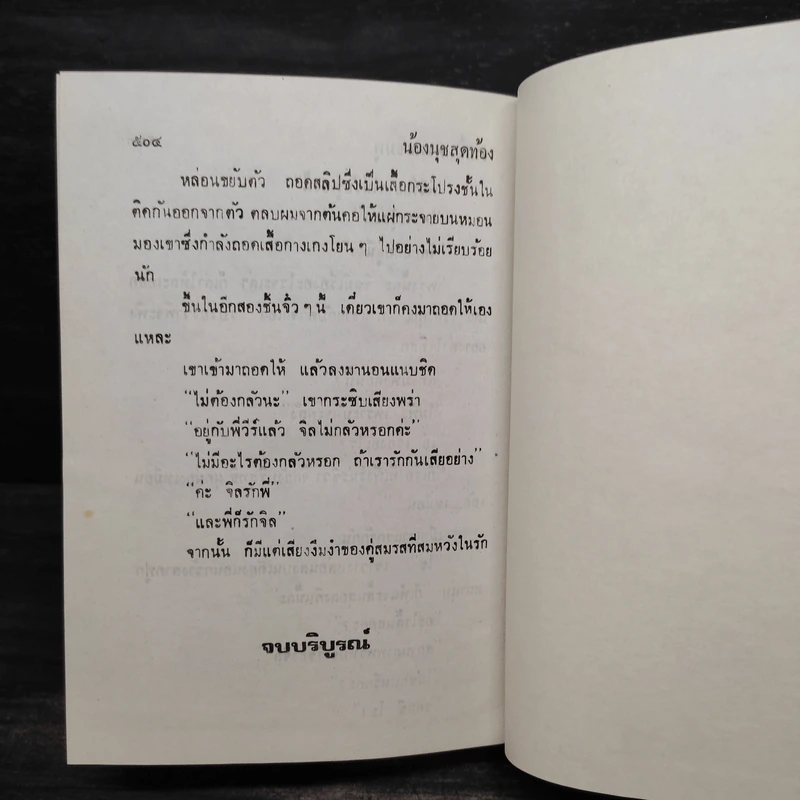 ๕๐๔
น้องนุชสุดท้อง
หล่อนขยับตัว ถอดสลิปซึ่งเป็นเสื้อกระโปรงชั้นใน
ติดกันออกจากตัว ตลบผมจากต้นคอให้แผ่กระจายบนหมอน
มองเขาซึ่งกำลังถอดเสื้อกางเกงโยน ๆ ไปอย่างไม่เรียบร้อย
นัก
ชั้นในอีกสองชิ้นจิ๋ว ๆ นี้ เดี๋ยวเขาก็คงมาถอดให้เอง
แหละ
เขาเข้ามาถอดให้ แล้วลงมานอนแนบชิด
“ไม่ต้องกลัวนะ” เขากระซิบเสียงพร่า
“อยู่กับพี่วีร์แล้ว จิลไม่กลัวหรอกค่ะ”
“ไม่มีอะไรต้องกลัวหรอก ถ้าเรารักกันเสียอย่าง”
“ค่ะ จิลรักพี่”
“และพี่ก็รักจิล”
จากนั้น ก็มีแต่เสียงงึมงำของคู่สมรสที่สมหวังในรัก
จบบริบูรณ์